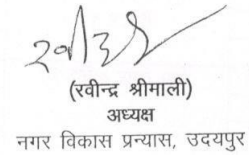 रवीन्द्र
(रवीन्द्र श्रीमाली)
अध्यक्ष
नगर विकास प्रन्यास, उदयपुर